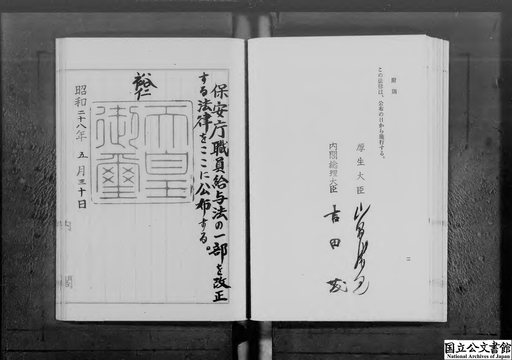 附則
この法律は、公布の日から施行する。
厚生大臣 山縣勝見
内閣総理大臣 吉田茂
二
保安庁職員給与法の一部を改正
する法律をここに公布する。
裕仁
天皇
御璽
昭和二十八年 五月三十日
国立公文書館
National Archives of Japan